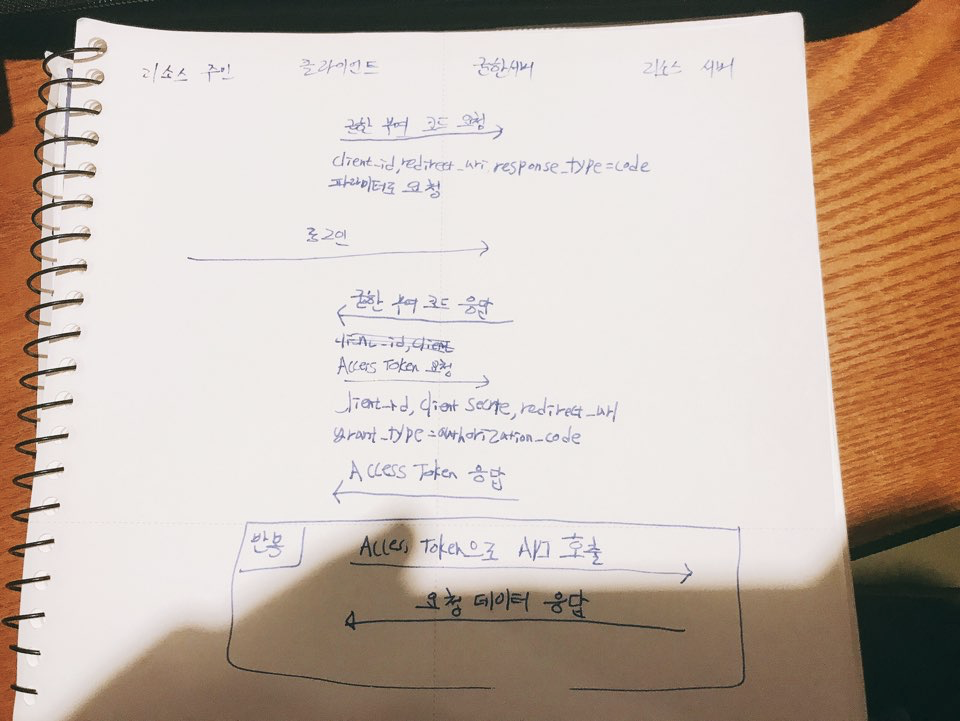 리소스 주인 클라이언트 권한서버 리소스 서버
권한 부여 코드 요청
client_id, redirect_uri, response_type=code
파라미터로 요청
로그인
권한 부여 코드 응답
client_id, client
Access Token 요청
client_id, client secrte, redirect_url
grant_type=authorization_code
Access Token 응답
반복
Access Token으로 API 호출
요청 데이터 응답